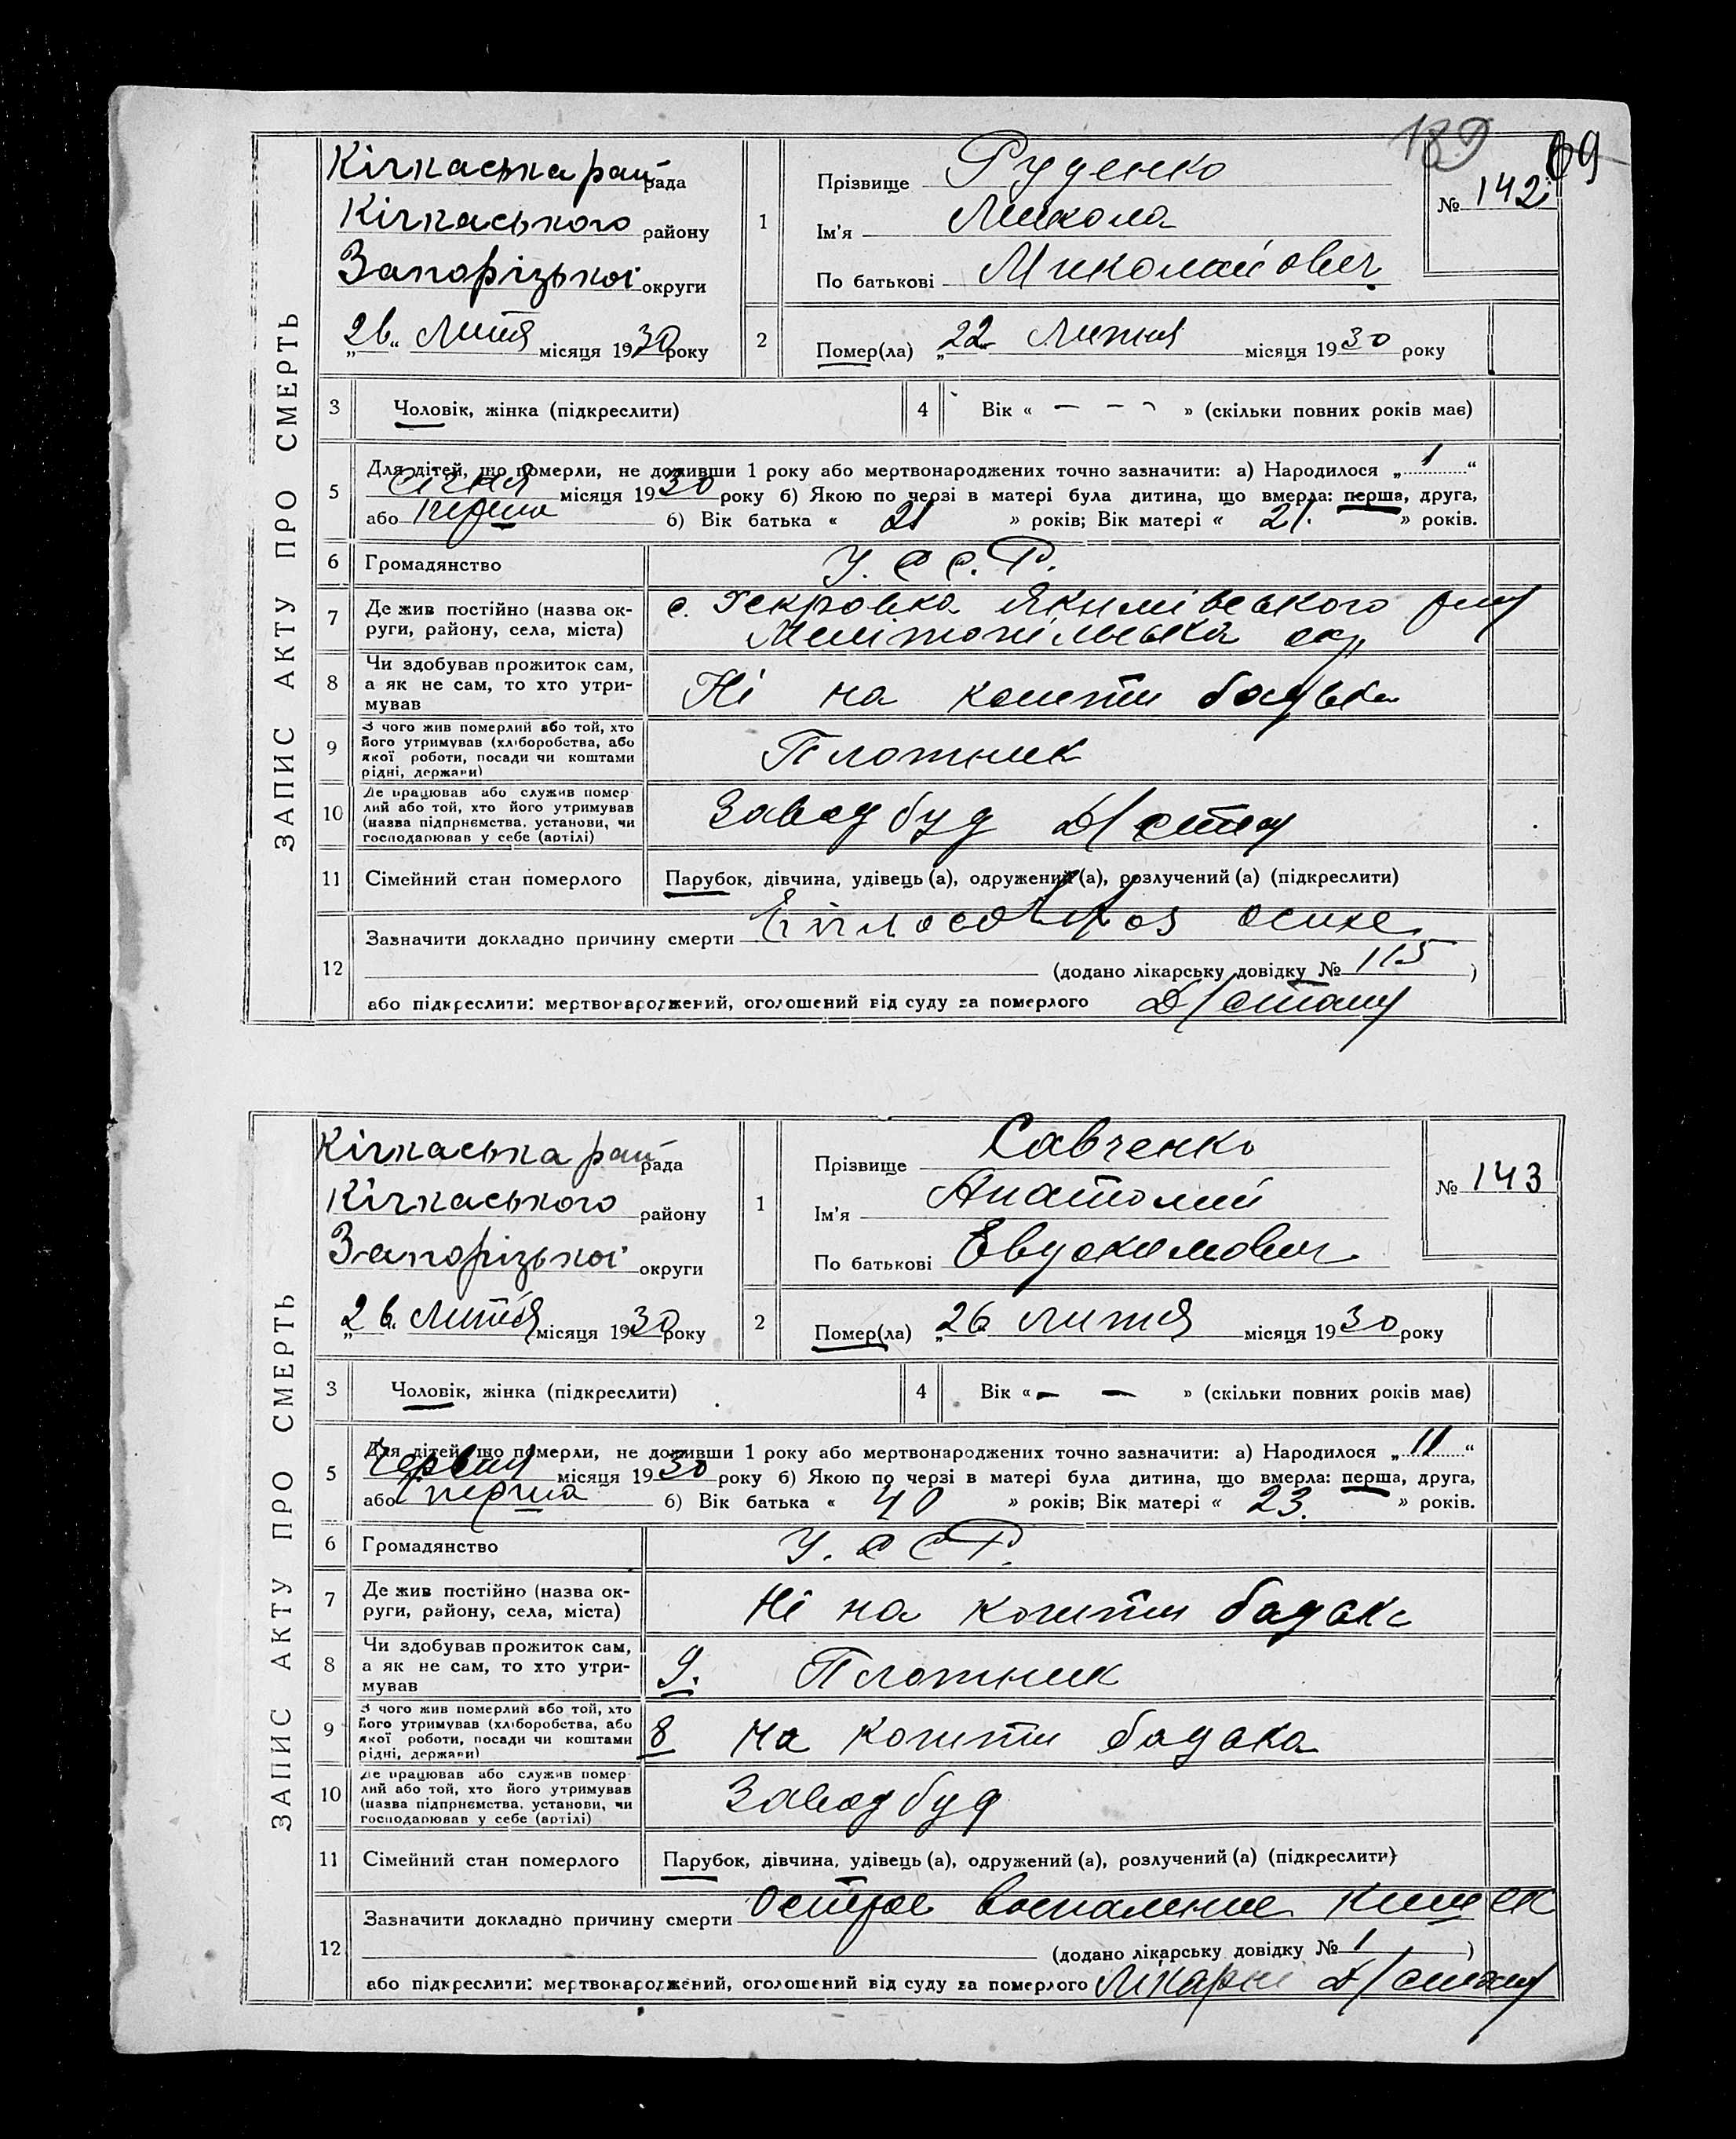 189 69
ЗАПИС АКТУ ПРО СМЕРТЬ
Кічкаська рай рада
Кічкаського району
Запорізької округи
„26“ Липня місяця 1930 року
1
Прізвище Руденко
Ім'я Микола
По батькові Миколайович
№ 142
2
Помер(ла) „22 Липня місяця 1930 року
3 Чоловік, жінка (підкреслити)
4 Вік « — — — » (скільки повних років має)
5
Для дітей, що померли, не доживши 1 року або мертвонароджених точно зазначити: а) Народилося „1“
Січня місяця 1930 року б) Якою по черзі в матері була дитина, що вмерла: перша, друга,
або перша б) Вік батька « 21 » років; Вік матері « 21. » років.
6 Громадянство У.С.С.Р.
7
Де жив постійно (назва ок-
руги, району, села, міста)
с. Якимівського
Мелітопільська окр
8
Чи здобував прожиток сам,
а як не сам, то хто утри-
мував
Ні на кошти батька
9
З чого жив померлий або той, хто
його утримував (хліборобства, або
якої роботи, посади чи коштами
рідні, держави)
Плотник
10
Де працював або служив помер
лий або той, хто його утримував
(назва підприємства, установи, чи
господарював у себе (артілі)
Заводбуд Д/стан
11 Сімейний стан померлого Парубок, дівчина, удівець (а), одружений (а), розлучений (а) (підкреслити)
12
Зазначити докладно причину смерти
(додано лікарську довідку № 115 )
або підкреслити: мертвонароджений, оголошений від суду за померлого Д/стану
ЗАПИС АКТУ ПРО СМЕРТЬ
Кічкаська рай рада
Кічкаського району
Запорізької округи
„26“ Липня місяця 1930 року
1
Прізвище Савченко
Ім'я Анатолий
По батькові Евдокимович
№ 143
2
Помер(ла) „26 липня місяця 1930 року
3 Чоловік, жінка (підкреслити)
4 Вік « — — » (скільки повних років має)
5
Для дітей, що померли, не доживши 1 року або мертвонароджених точно зазначити: а) Народилося „11“
Червня місяця 1930 року б) Якою по черзі в матері була дитина, що вмерла: перша, друга,
або перша б) Вік батька « 40 » років; Вік матері « 23. » років.
6 Громадянство У.С.С.Р.
7
Де жив постійно (назва ок-
руги, району, села, міста)
Ні на кошти батька
8
Чи здобував прожиток сам,
а як не сам, то хто утри-
мував
9. Плотник
9
З чого жив померлий або той, хто
його утримував (хліборобства, або
якої роботи, посади чи коштами
рідні, держави)
8 на кошти батька
10
Де працював або служив помер
лий або той, хто його утримував
(назва підприємства, установи, чи
господарював у себе (артілі)
Заводбуд
11 Сімейний стан померлого Парубок, дівчина, удівець (а), одружений (а), розлучений (а) (підкреслити)
12
Зазначити докладно причину смерти Острое воспаление кишек
(додано лікарську довідку № 1 )
або підкреслити: мертвонароджений, оголошений від суду за померлого Лікарні Д/стану